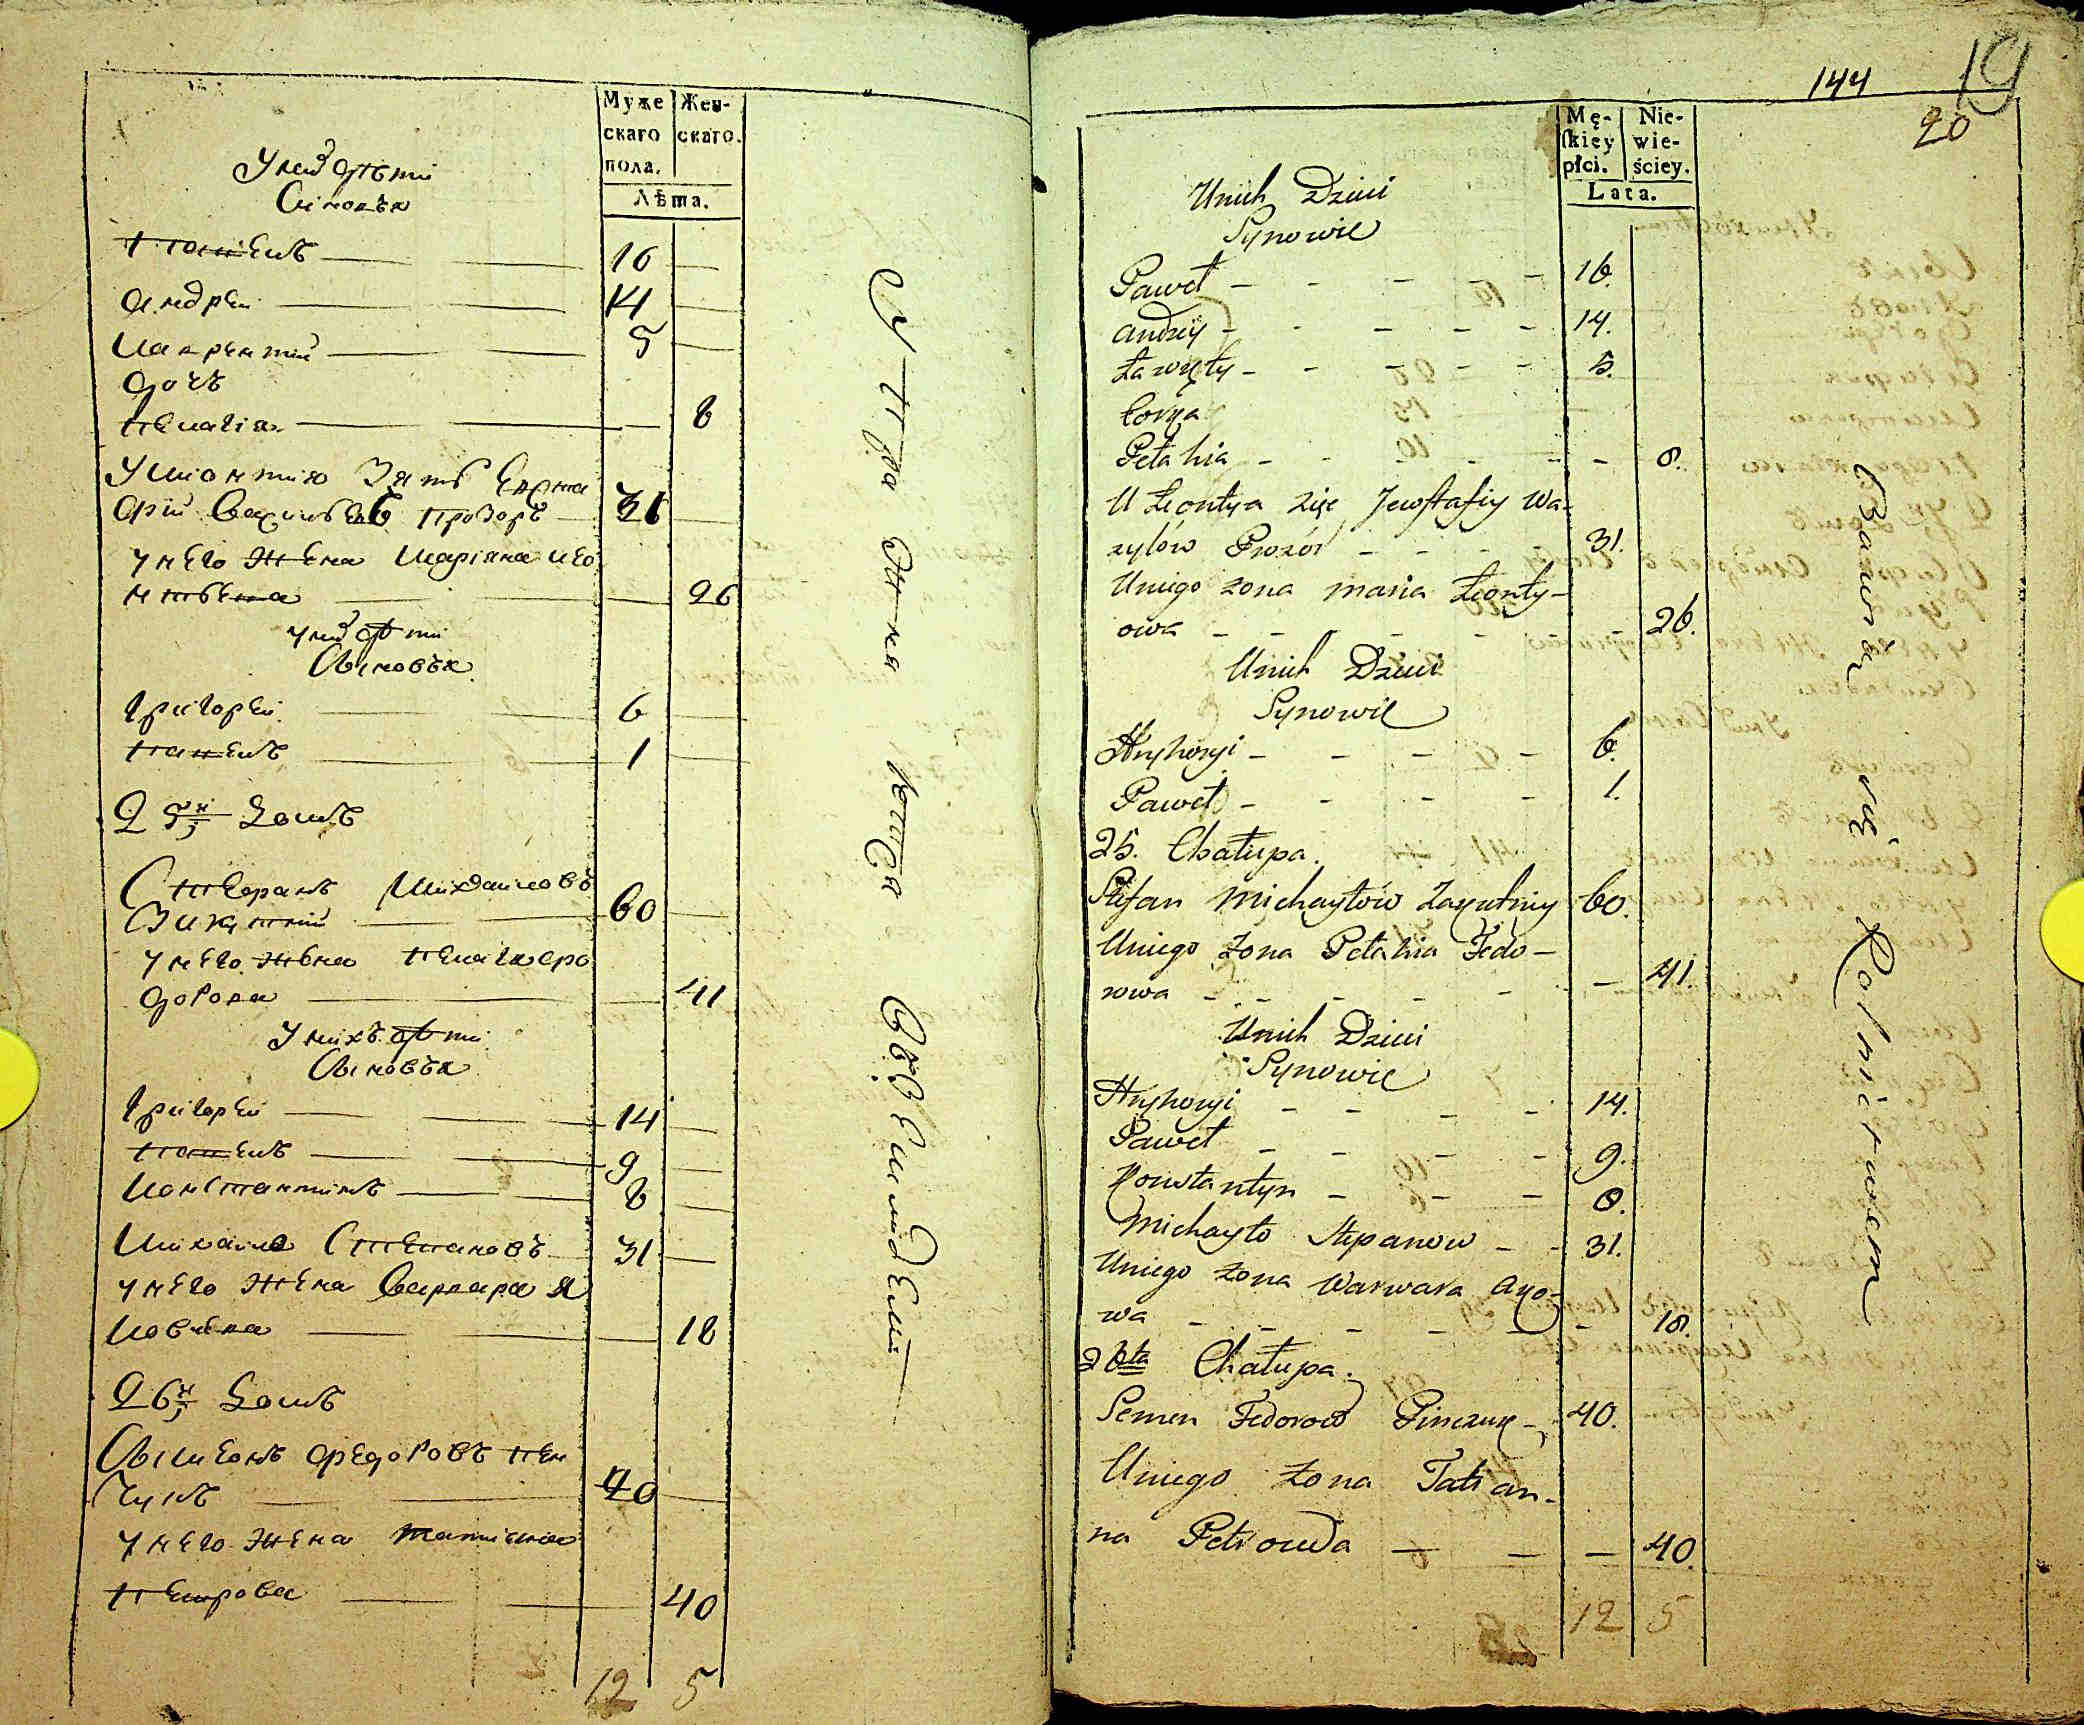 Муже
скаго
пола.
Жен-
скаго.
Лѣта.
У них дѣти
Сыновья
Павелъ 16
Андрей 14
Лаврентий 5
дочь
Пелагія 8
У Леонтия зять Евста
фій Васильевъ Прозоръ 31
у него жена Маріяна Лео
нтьева 26
у них дѣти
Сыновья
Григорей 6
Павелъ 1
25я Домъ
Стефанъ Михайловъ
60
у него жена Пелагия Фео
дорова 41
У нихъ дѣти
Сыновья
Григорей 14
Павелъ 9
Константинъ 8
Михайло Степановъ 31
у него жена Варвара Я
ковлева 18
26я Домъ
Сымеонъ Феодоровъ Пен
чукъ 40
у него жена Татиана
Петрова 40
12 5
Упражняются Возделыванием
144
19
20
Mę-
skiey
płci.
Nie-
wie-
ściey.
Lata.
Unich Dzieci
Synowie
Paweł - - - - 16.
Andrzy - - - - - 14.
Ławręty - - - - - 5.
Corka
Pelahia - - - - - - 8.
U Leontya zięc Jewstafiy Wa-
zylów Prozór - - - - 31.
Uniego zona maria Leonty-
owa - - - - - - - 26.
Unich Dzieci
Synowie
Hryhoryi - - - - - 6.
Paweł - - - - 1.
25. Chałupa.
Stefan Michayłów Zazutniy 60.
Uniego zona Pelahia Fedo-
rowa - - - - - - 41.
Unich Dzieci
Synowie
Hryhoryi - - - - 14.
Paweł - - - - - 9.
Konstantyn - - - 8.
Michayło Stepanow - - 31.
Uniego zona Warwara
wa - - - - - - 18.
26ta Chałupa.
Semen Fedorow Pinczuk - 40.
Uniego zona Tatian-
na Petrowa - - - 40.
12 5
Bawią się Rolnictwem